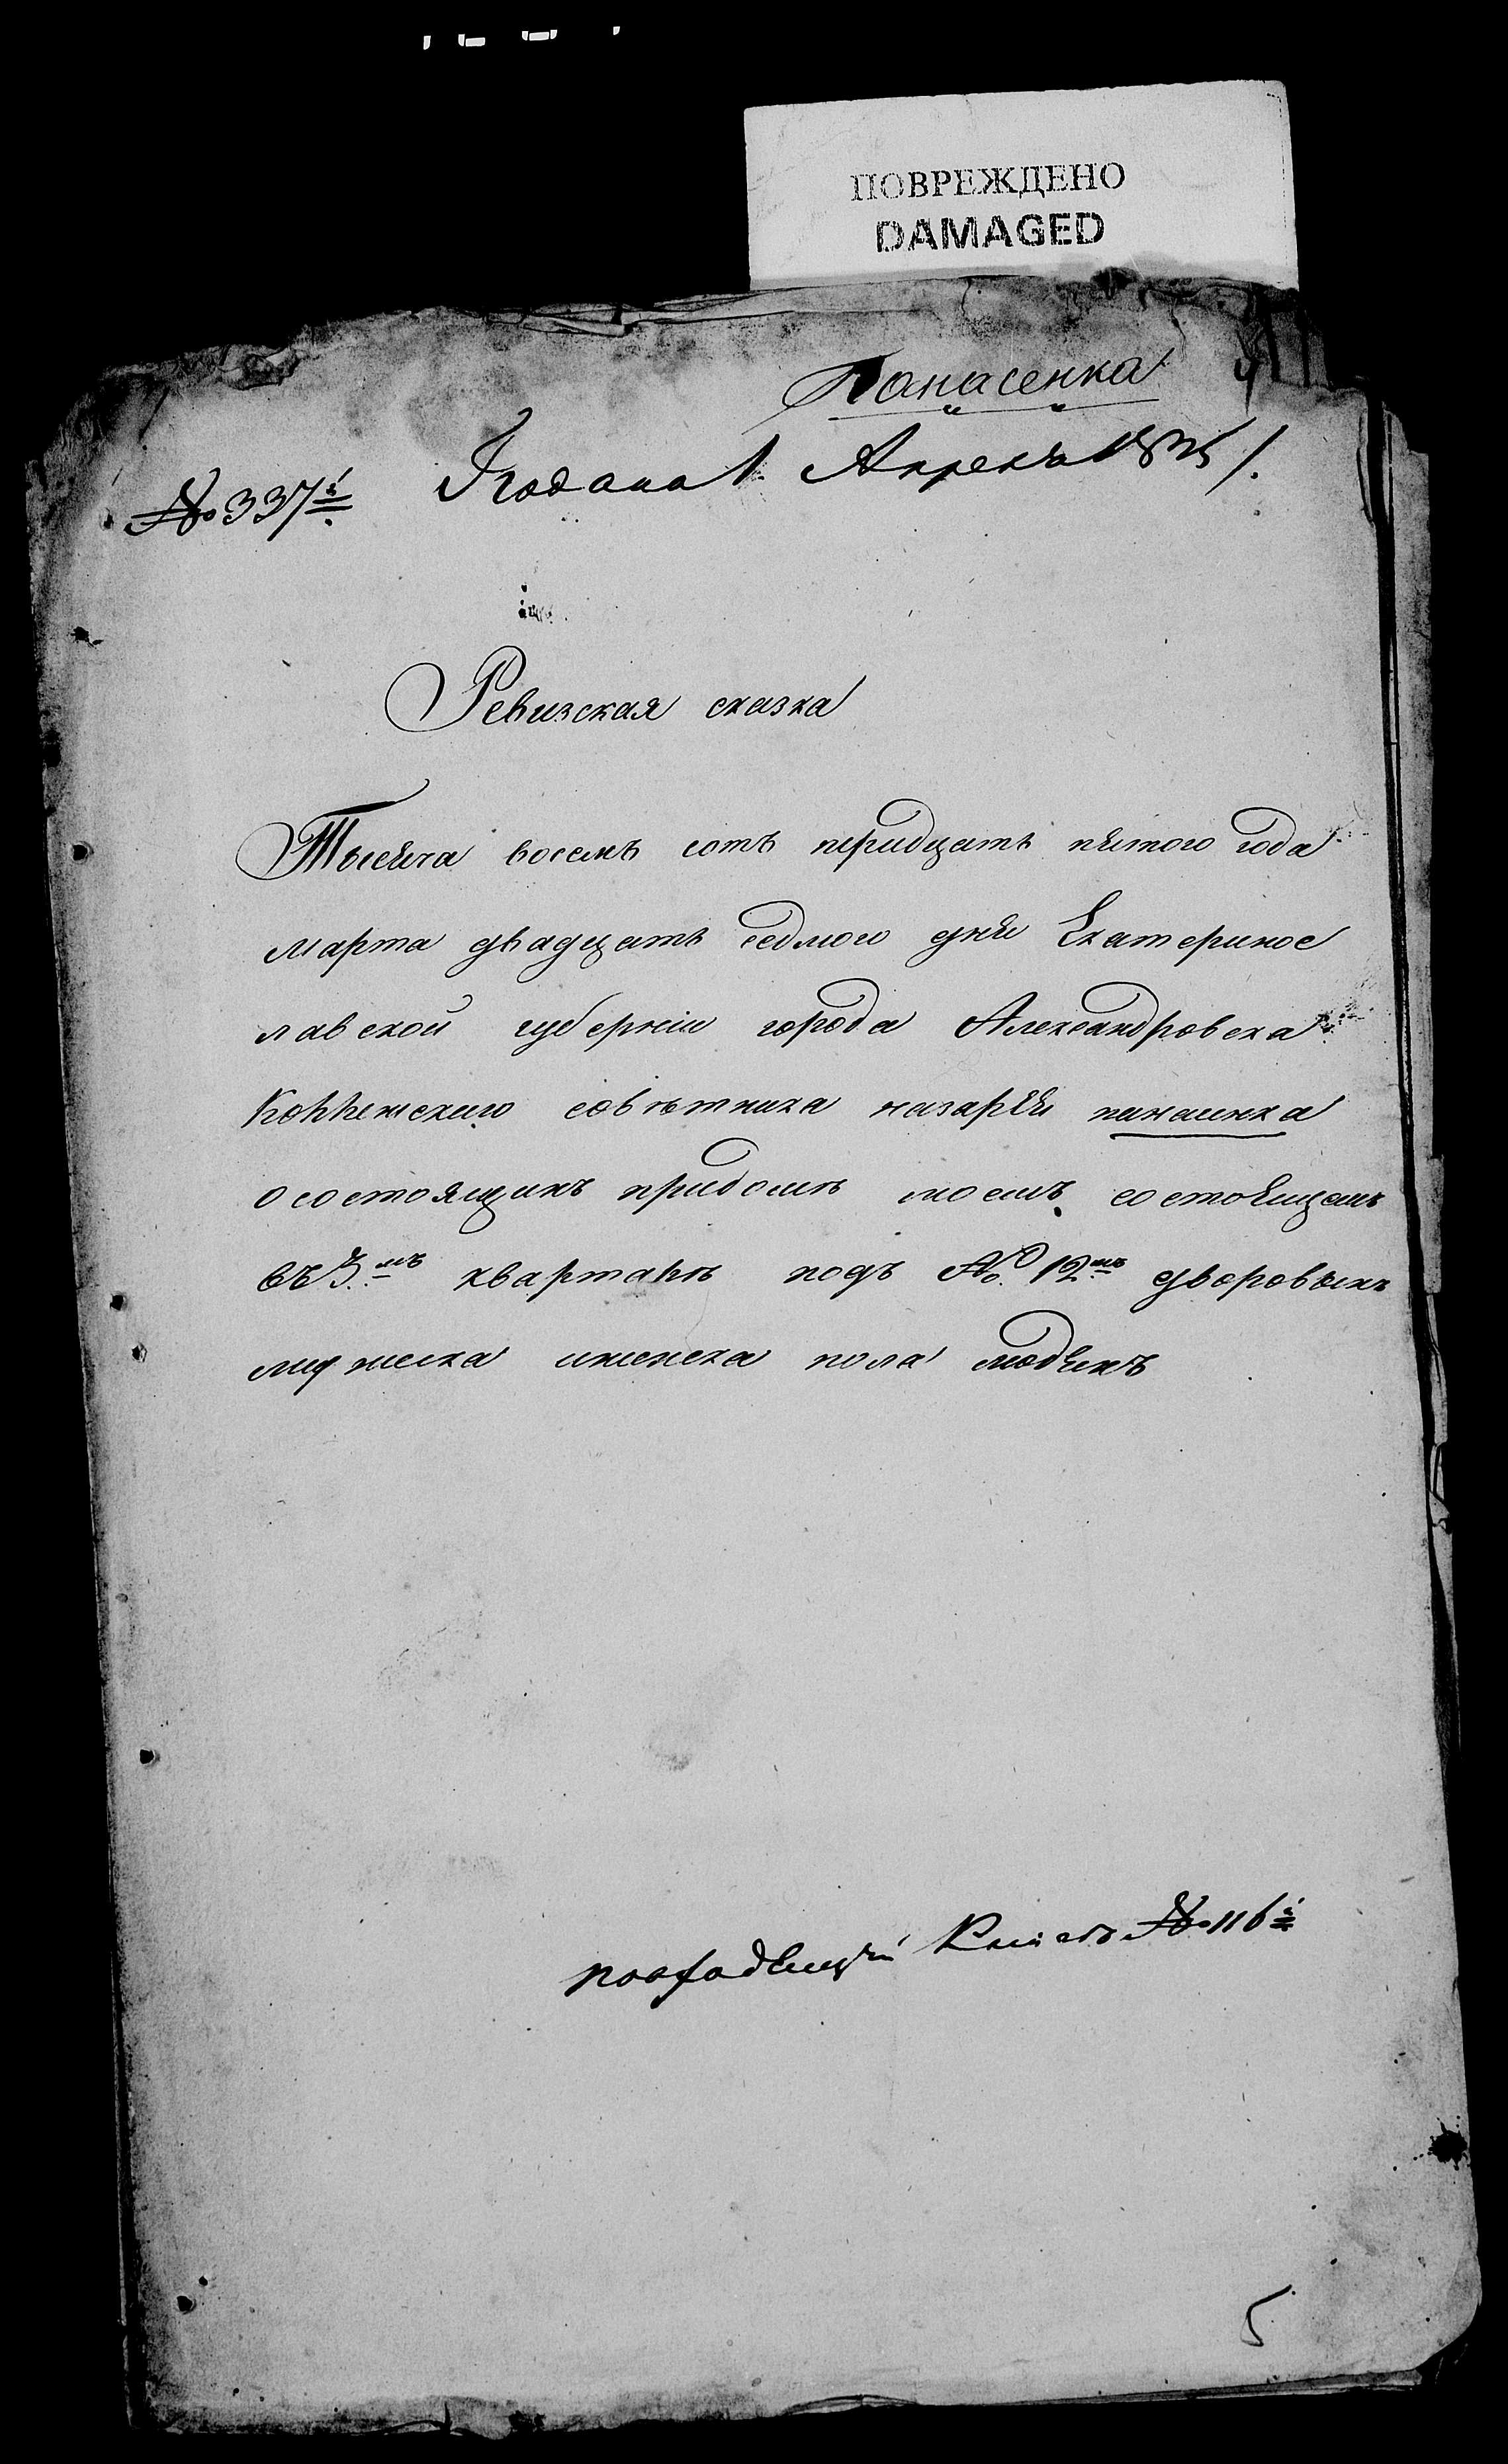 ПОВРЕЖДЕНО
DAMAGED
Панасенка
№ 337й
Подана 1. Апреля 1835 г.
Ревизская сказка
Тысяча восемъ сотъ тридцать пятого года
марта двадцать седмого дня Екатеринос
лавской губернiи города Александровска
Коллежского советника назарiя панасенка
о состоящихъ придоме моемъ состоящемъ
въ 3.мъ квартале подъ № 12мъ дворовыхъ
мужеска иженска пола людехъ
№ 116й
5